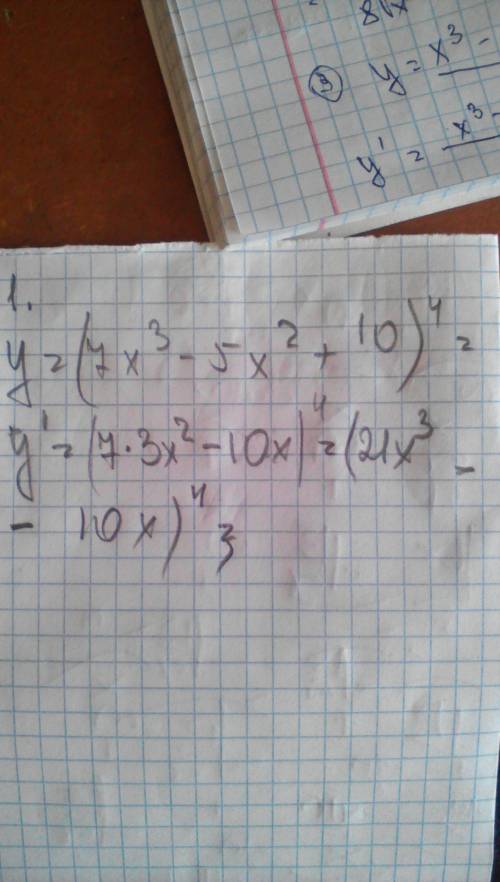 8√x
③ y = x³ -
y' = x³ -
1.
y = (7x³ - 5x² + 10)⁴ =
y' = (7·3x² - 10x)⁴ = (21x³ -
- 10x)⁴;